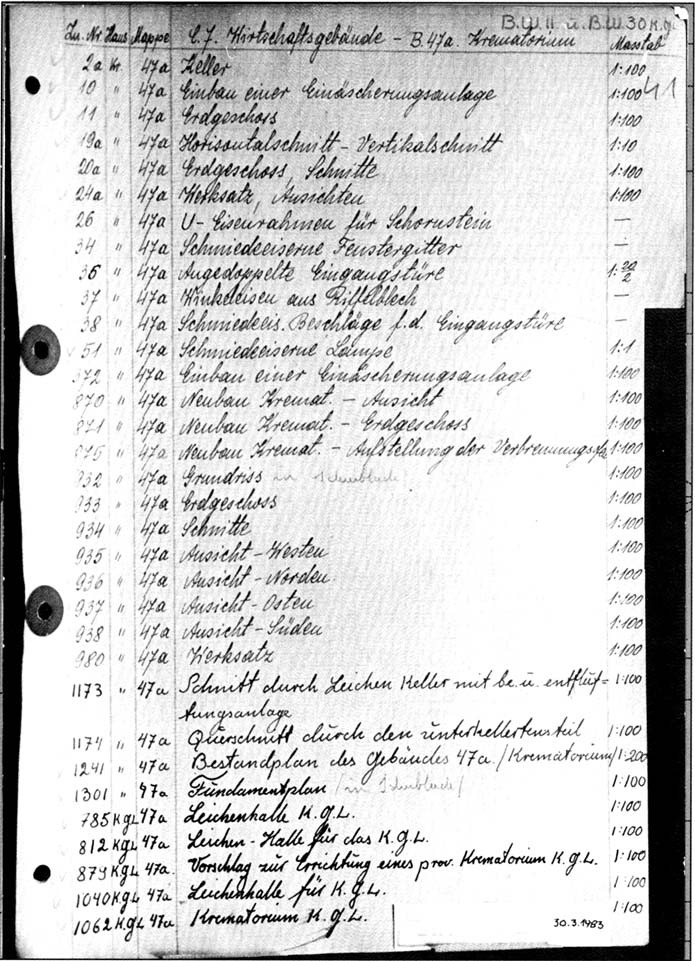 B.W.11 u. B.W.30 K.g.
Zn. Nr. Haus Mappe C.J. Wirtschaftsgebäude - B.47a. Krematorium Masstab
41
2a Kr. 47a Keller 1:100
10 " 47a Einbau einer Einäscherungsanlage 1:100
11 " 47a Erdgeschoss 1:100
19a " 47a Horisontalschnitt - Vertikalschnitt 1:10
20a " 47a Erdgeschoss, Schnitte 1:100
24a " 47a Werksatz, Ansichten 1:100
26 " 47a U-Eisenrahmen für Schornstein —
34 " 47a Schmiedeeiserne Fenstergitter —
36 " 47a Angedoppelte Eingangstüre 1:20/2
37 " 47a Winkeleisen aus Riffelblech —
38 " 47a Schmiedeeis. Beschläge f.d. Eingangstüre —
51 " 47a Schmiedeeiserne Lampe 1:1
372 " 47a Einbau einer Einäscherungsanlage 1:100
870 " 47a Neubau Kremat. - Ansicht 1:100
871 " 47a Neubau Kremat. - Erdgeschoss 1:100
875 " 47a Neubau Kremat. - Aufstellung der 1:100
932 " 47a Grundriss in Schublade 1:100
933 " 47a Erdgeschoss 1:100
934 " 47a Schnitte 1:100
935 " 47a Ansicht - Westen 1:100
936 " 47a Ansicht - Norden 1:100
937 " 47a Ansicht - Osten 1:100
938 " 47a Ansicht - Süden 1:100
980 " 47a Werksatz 1:100
1173 " 47a Schnitt durch Leichen Keller mit be. u. entlüf= 1:100
tungsanlage
1174 " 47a Querschnitt durch den unterkellerten teil 1:100
1241 " 47a Bestandplan des Gebäudes 47a. /Krematorium/ 1:200
1301 " 47a Fundamentplan /in Schublade/ 1:100
785 KgL 47a Leichenhalle K.g.L. 1:100
812 KgL 47a Leichen-Halle für das K.g.L. 1:100
879 KgL 47a. Vorschlag zur Errichtung eines prov. Krematorium K.g.L. 1:100
1040 KgL 47a Leichenhalle für K.g.L. 1:100
1062 KgL 47a Krematorium K.g.L. 1:100
30.3.1983